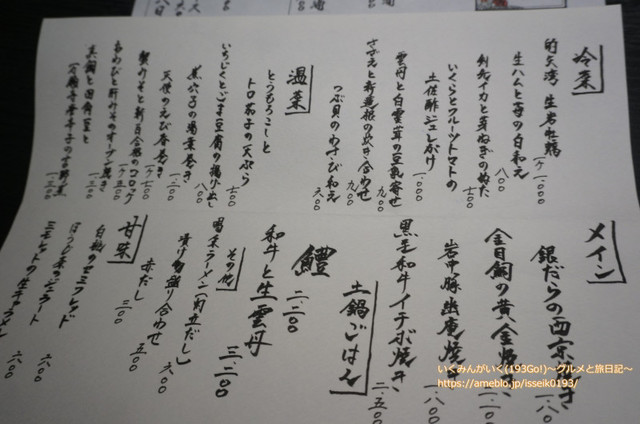 冷菜
的矢湾 生岩牡蠣 一ヶ 一.〇〇〇
生ハムと苺の白和え 八〇〇
剣先イカと芽ねぎのぬた 七〇〇
いくらとフルーツトマトの
土佐酢ジュレがけ 一.〇〇〇
雲丹と白雲茸の豆乳寄せ 九〇〇
さざえと新蓮根の炊き合わせ 九〇〇
つぶ貝のわさび和え 六〇〇
温菜
とうもろこしと
トロ茄子の天ぷら 七〇〇
いちじくとごま豆腐の揚げ出し 八〇〇
煮穴子の湯葉巻き 一.二〇〇
天使のえび春巻き 一ヶ 七〇〇
蟹みそと新百合根のコロッケ 一ヶ 五〇〇
あわびと肝みそのオーブン焼き 一.三〇〇
メイン
銀だらの西京焼き 一.八〇〇
金目鯛の黄金焼き 二.二〇〇
岩中豚幽庵焼き 一.八〇〇
黒毛和牛イチボ焼き 二.五〇〇
土鍋ごはん
鱧 二.二〇〇
和牛と生雲丹 三.二〇〇
その他
喝采ラーメン(肉立だし)
漬け物盛り合わせ 六〇〇
赤だし 五〇〇
甘味
白桃のセミフレッド
ほうじ茶のジェラート 六〇〇
ミモレットの生キャラメル 六〇〇
いくみんがいく(193Go!)～グルメと旅日記～
https://ameblo.jp/isseik0193/